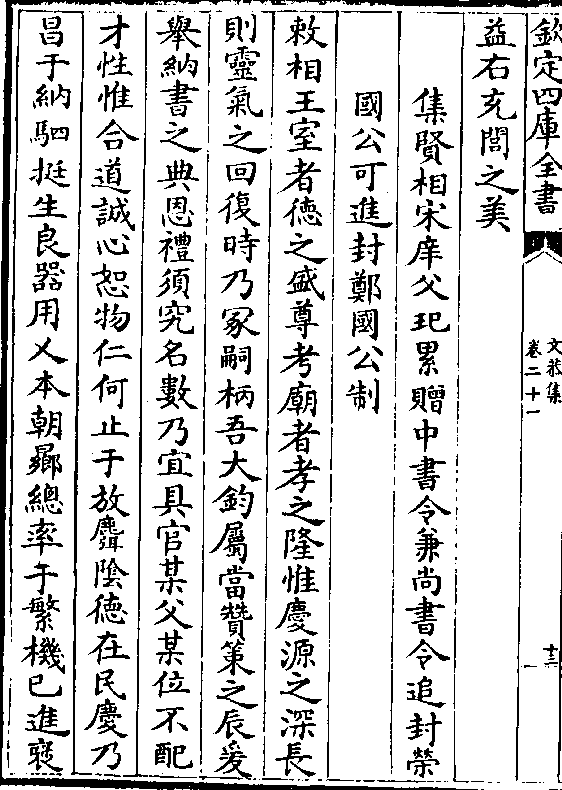 欽定四庫全書
文恭集
卷二十一
十三
益右充閭之美
集賢相宋庠父玘累贈中書令兼尚書令追封榮
國公可進封鄭國公制
敕相王室者德之盛尊考廟者孝之隆惟慶源之深長
則靈氣之回復時乃冢嗣柄吾大鈞屬當贊策之辰爰
舉納書之典恩禮須究名數乃宜具官某父某位不配
才性惟合道誠心恕物仁何止于放麑陰德在民慶乃
昌于納駟挺生良器用乂本朝曏總率于繁機已進褒